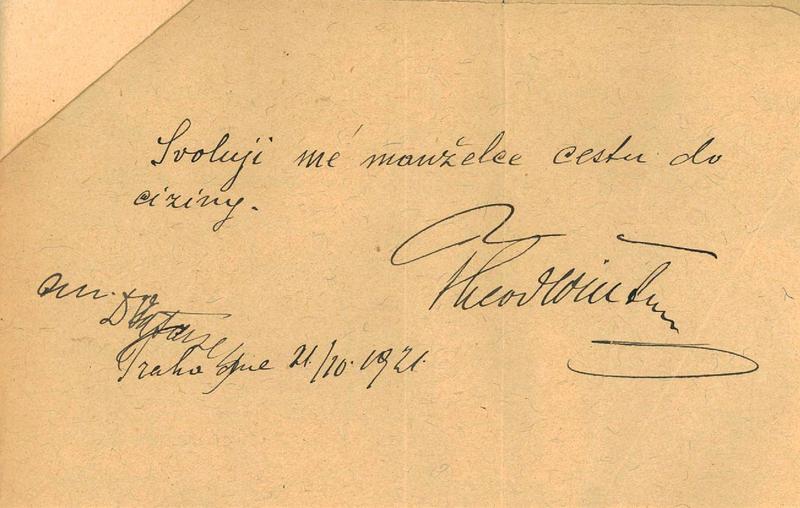 Svoluji mé manželce cestu do
ciziny.
Theod
Praha dne 21./10. 1921.